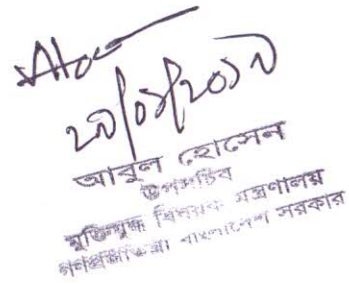 ২৯/০৯/২০১৯
আবুল হোসেন
উপসচিব
মুক্তিযুদ্ধ বিষয়ক মন্ত্রণালয়
গণপ্রজাতন্ত্রী বাংলাদেশ সরকার